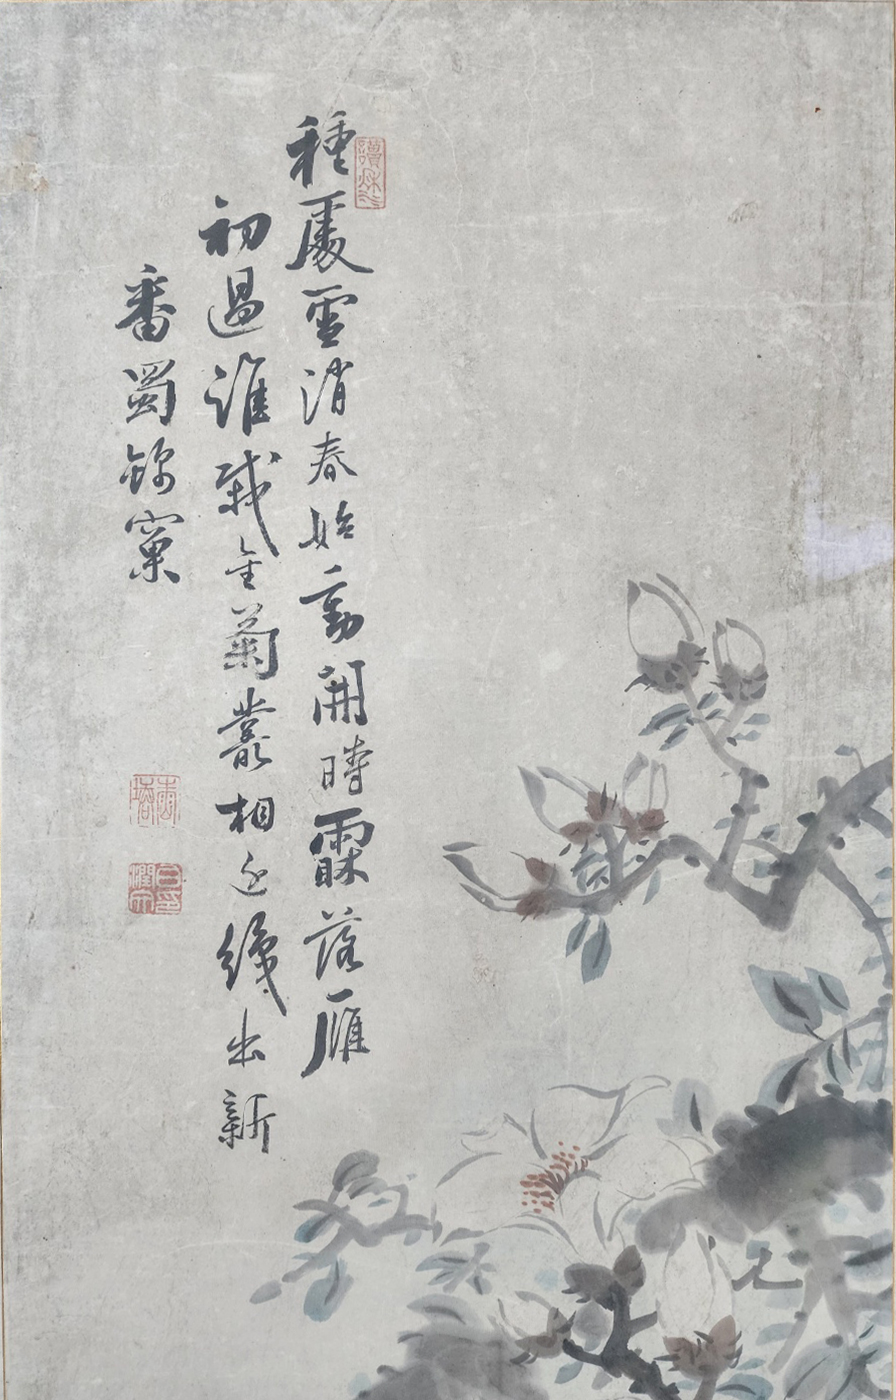 種處雪消春始動開時霜落雁
初過誰栽金菊叢相近織出新
番蜀錦窠